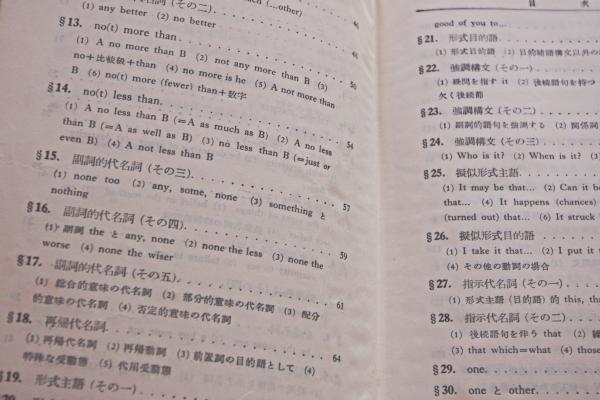 詞的代名詞 (その二)
(1) any better (2) no better
48
§13. no(t) more than
50
(1) A no more than B (2) not any more than B (3)
no+比較級+than (4) no more is he (5) A not more than
B (6) no(t) more (fewer) than+数字
§14. no(t) less than
54
(1) A no less than B (=A as much as B) (2) A no less
than B (=A as well as B) (3) no less than B (=just or
even B) (4) A not less than B
§15. 副詞的代名詞 (その三)
57
(1) none too (2) any, some, none (3) something と
nothing
§16. 副詞的代名詞 (その四)
59
(1) 副詞 the と any, none (2) none the less (3) none the
worse (4) none the wiser
§17. 副詞的代名詞 (その五)
61
(1) 綜合的意味の代名詞 (2) 部分的意味の代名詞 (3) 配分
的意味の代名詞 (4) 否定的意味の代名詞
§18. 再帰代名詞
64
(1) 再帰代名詞 (2) 再帰動詞 (3) 前置詞の目的語として (4)
特殊な受動態 (5) 代用受動態
§19. 形式主語 (その一)
目 次
good of you to...
§21. 形式目的語
(1) 形式目的語 (2) 目的補語構文以外の
§22. 強調構文 (その一)
(1) 疑問を指す it (2) 後続語句を持つ
欠く後続節
§23. 強調構文 (その二)
(1) 副詞的語句を強調する (2) 関係詞
§24. 強調構文 (その三)
(1) Who is it? (2) When is it? (3)
§25. 擬似形式主語
(1) It may be that... (2) Can it be
that... (4) It happens (chances)
(turned out) that... (6) It struck
§26. 擬似形式目的語
(1) I take it that... (2) I put it
(4) その他の動詞の場合
§27. 指示代名詞 (その一)
(1) 形式主語 (目的語) 的 this, tha
§28. 指示代名詞 (その二)
(1) 後続語句を伴う that (2)
(3) that which=what (4) those
§29. one
§30. one と other